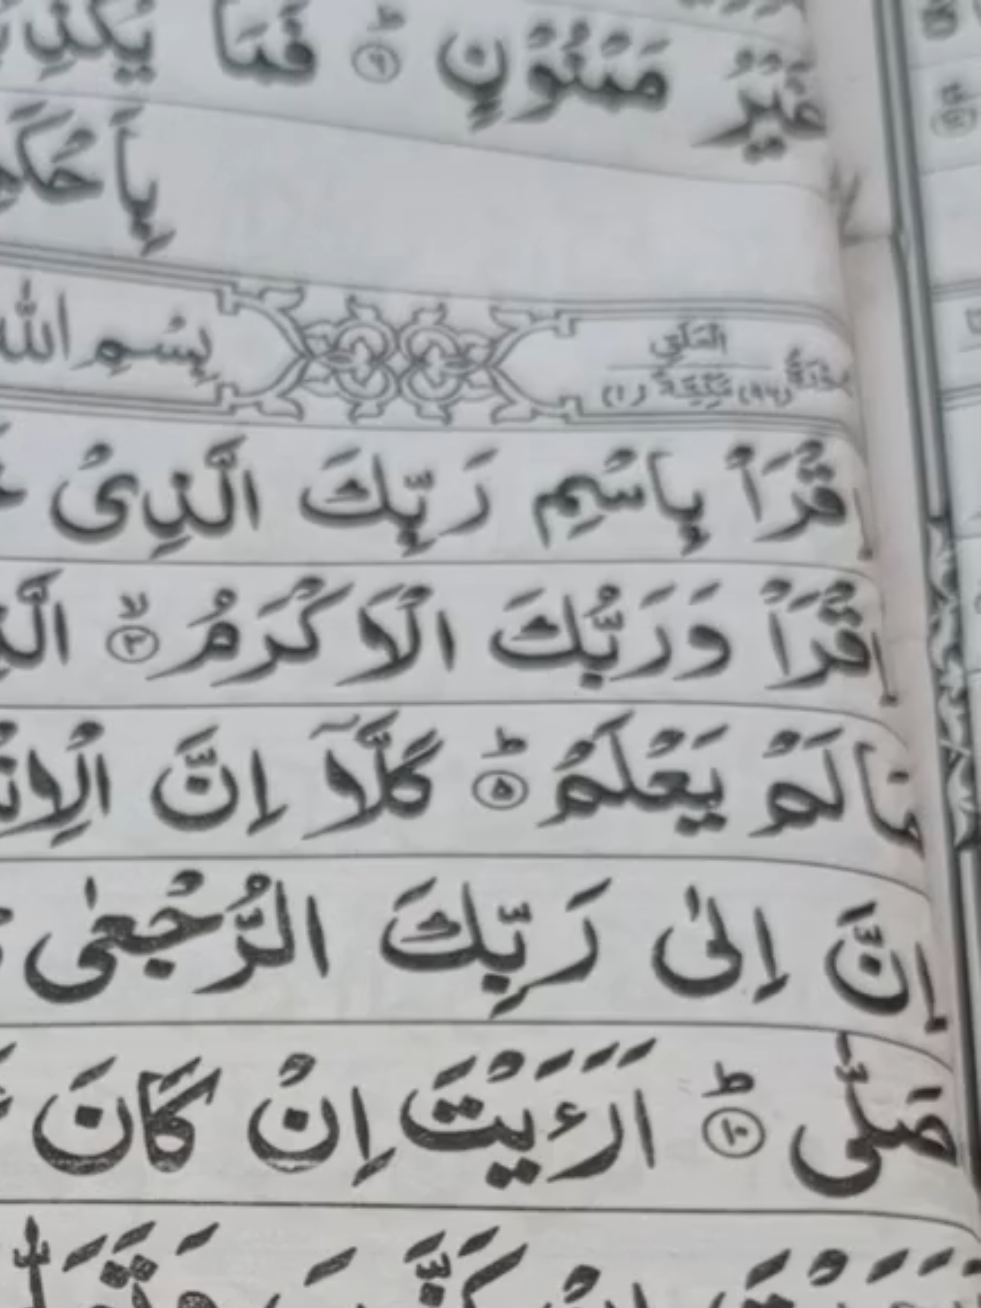 غَيْرُ مَمْنُوْنٍ ؕ۝۶ فَمَا
بِاَحْكَمِ
سُوْرَةُ الْعَلَقِ مَكِّيَّةٌ (۹۶) (۱) بِسْمِ اللّٰهِ
اِقْرَاْ بِاسْمِ رَبِّكَ الَّذِىْ
اِقْرَاْ وَرَبُّكَ الْاَكْرَمُ ۙ۝۳
مَا لَمْ يَعْلَمْ ؕ۝۵ كَلَّاۤ اِنَّ
اِنَّ اِلٰى رَبِّكَ الرُّجْعٰى
صَلّٰى ؕ۝۱۰ اَرَءَيْتَ اِنْ كَانَ